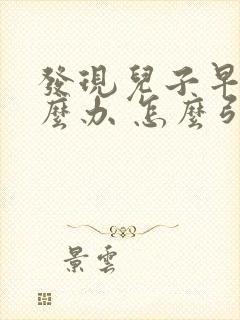 發現兒子早
麼办 怎麼
景雲